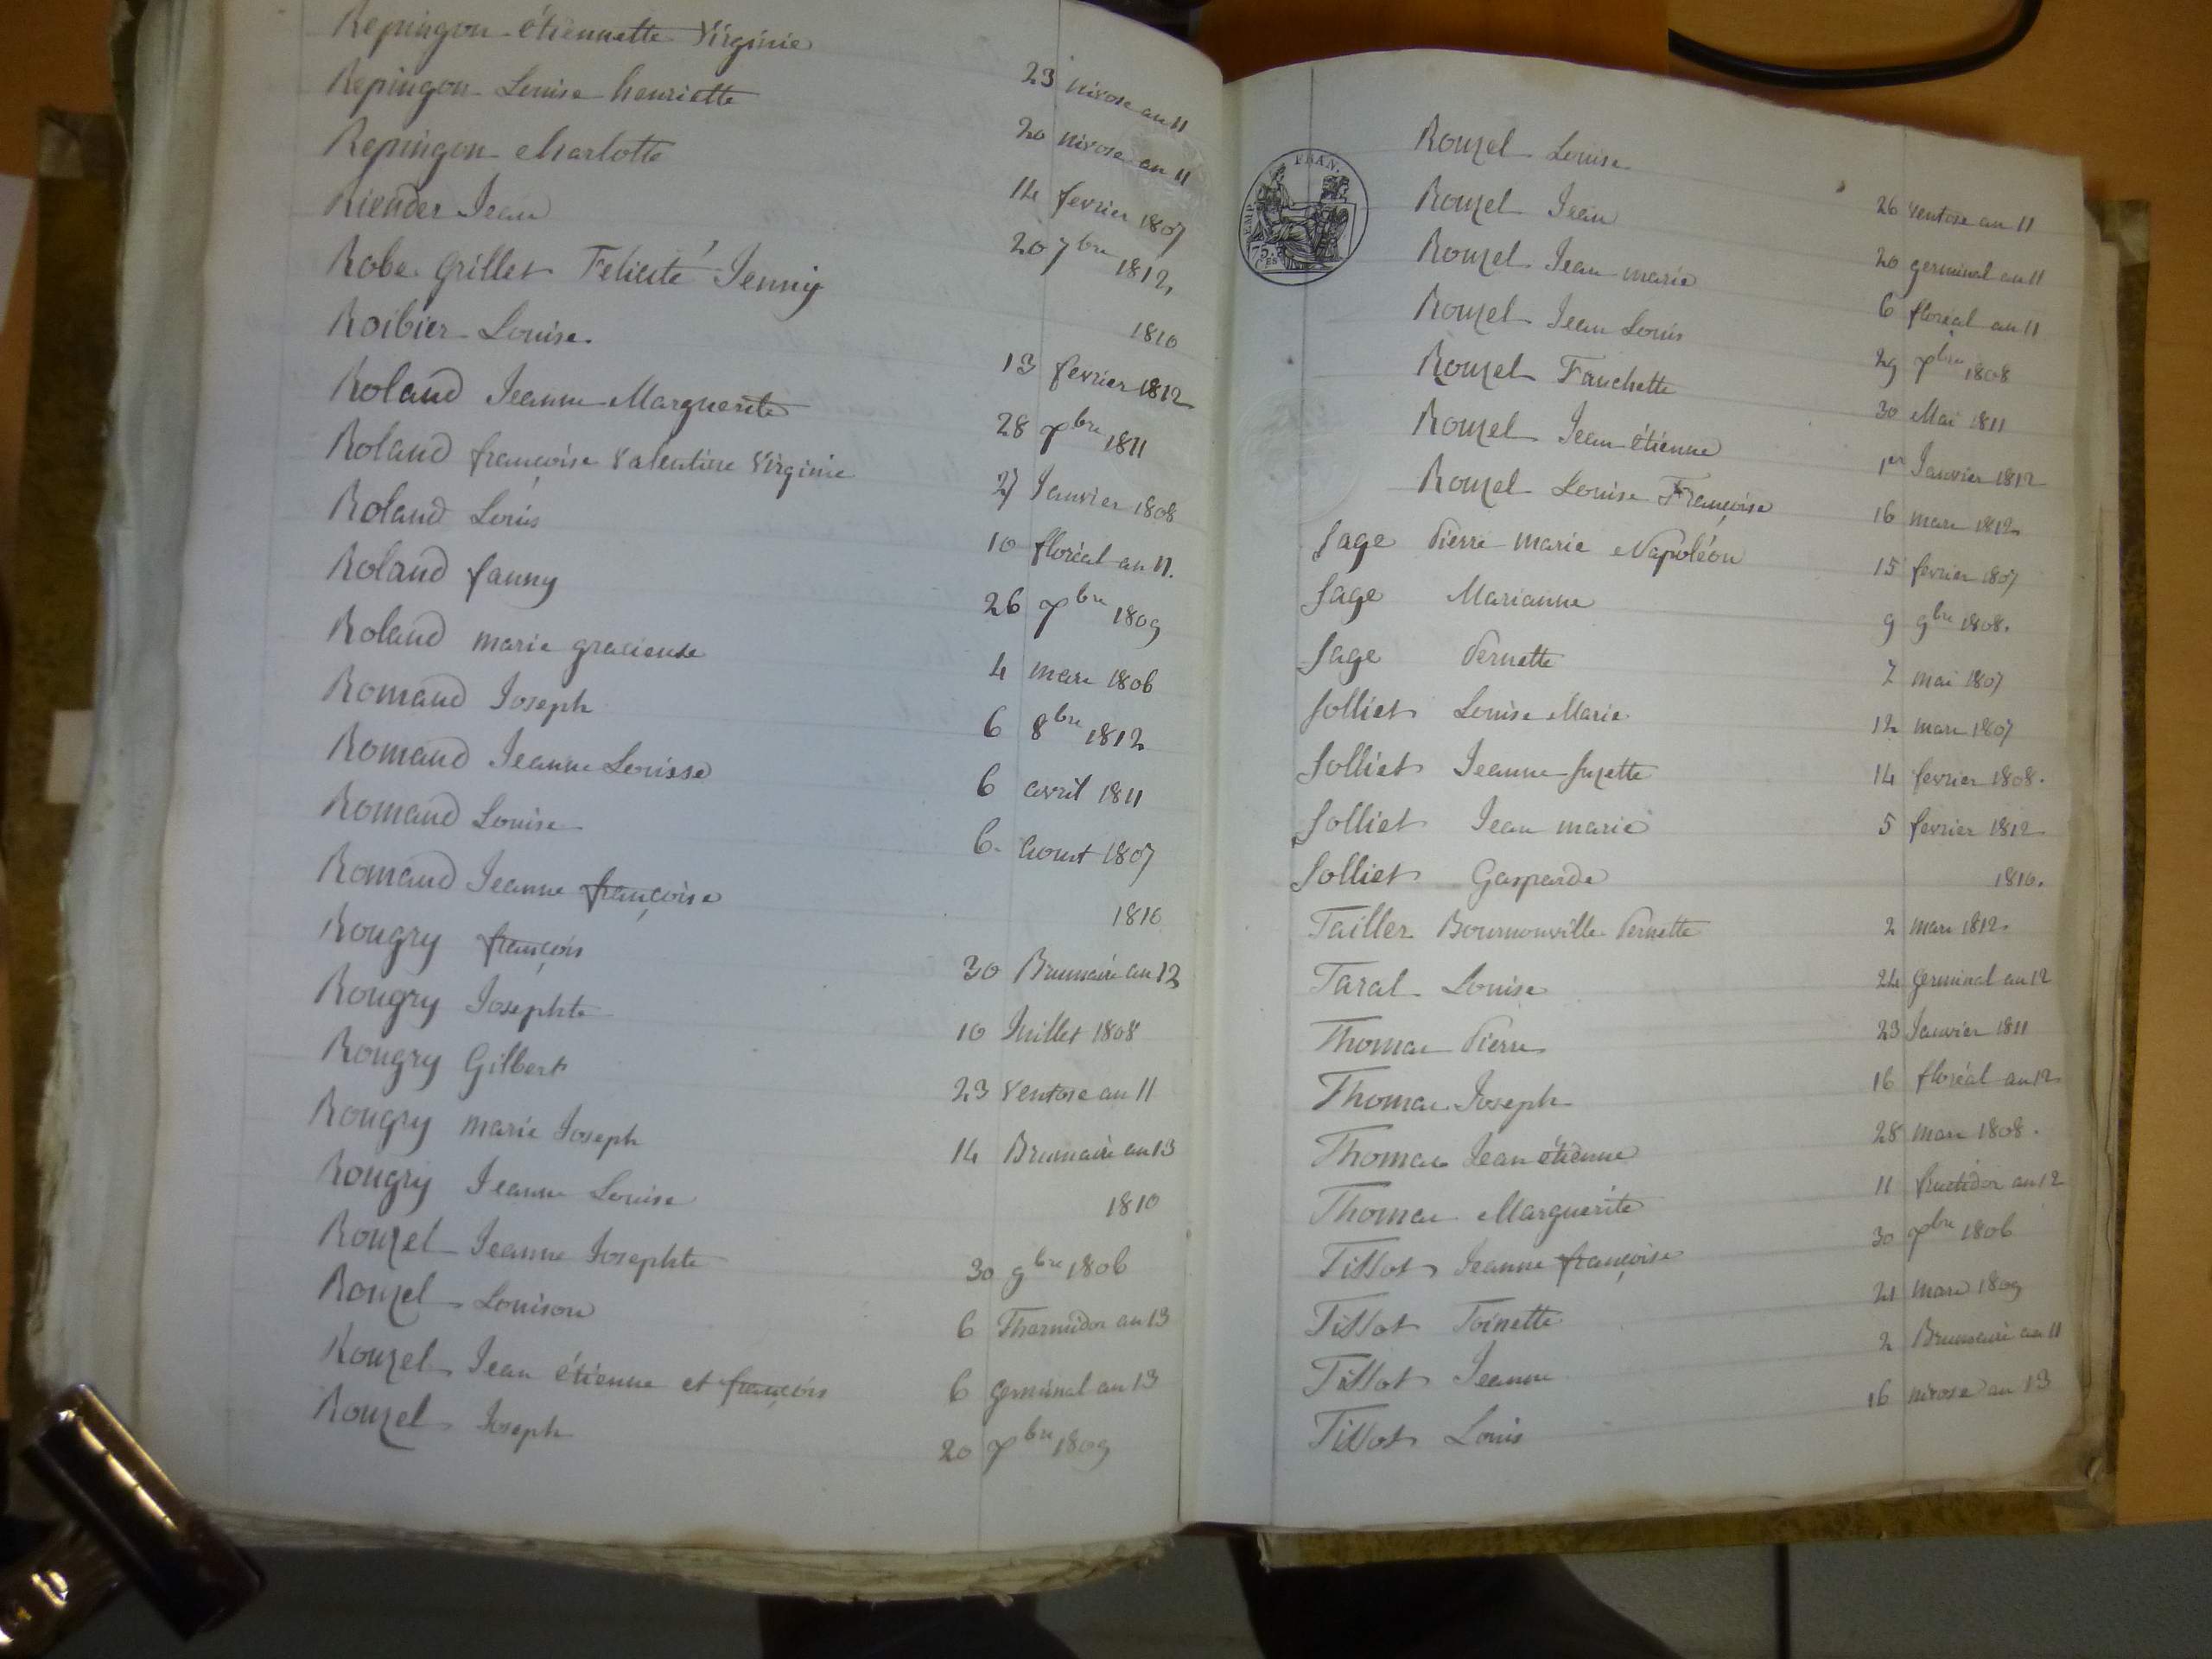 Repingon étiennette Virginie 23 nivose an 11
Repingon Louise henriette 20 nivose an 11
Repingon charlotte 14 fevrier 1807
Riender Jean 20 7bre 1812
Robe grillet Félicité Jenny 1810
Roibier Louise. 13 fevrier 1812
Roland Jeanne Marguerite 28 xbre 1811
Roland françoise Valentine Virginie 27 Janvier 1808
Roland Louis 10 floréal an 11.
Roland fanny 26 xbre 1809
Roland marie gracieuse 4 mars 1806
Romand Joseph 6 8bre 1812
Romand Jeanne Louisse 6 avril 1811
Romand Louise 6. Aoust 1807
Romand Jeanne françoise 1810
Rougry françois 30 Brumaire an 12
Rougry Josephte 10 Juillet 1808
Rougry Gilbert 23 Ventose an 11
Rougry marie Joseph 14 Brumaire an 13
Rougry Jeanne Louise 1810
Rouzel Jeanne Josephte 30 9bre 1806
Rouzel Louison 6 Thermidor an 13
Rouzel Jean étienne et françois 6 germinal an 13
Rouzel Joseph 20 xbre 1809
EMP. FRAN.
75 CES
Rouzel Louise 26 ventose an 11
Rouzel Jean 20 germinal an 11
Rouzel Jean marie 6 floréal an 11
Rouzel Jean Louis 29 xbre 1808
Rouzel Fanchette 30 Mai 1811
Rouzel Jean étienne 1er Janvier 1812
Rouzel Louise Françoise 16 mars 1812
Sage Pierre marie Napoléon 15 fevrier 1807
Sage Marianne 9 9bre 1808.
Sage Pernette 7 mai 1807
Solliet Louise Marie 12 mars 1807
Solliet Jeanne Suzette 14 fevrier 1808.
Solliet Jean marie 5 fevrier 1812
Solliet Gasparde 1810.
Tailler Bournonville Pernette 2 mars 1812.
Taral Louise 24 germinal an 12
Thomas Pierre 23 Janvier 1811
Thomas Joseph 16 floréal an 12
Thomas Jean étienne 28 mars 1808.
Thomas Marguerite 11 fructidor an 12
Tissot Jeanne françoise 30 xbre 1806
Tissot Toinette 21 mars 1809
Tissot Jeanne 2 Brumaire an 11
Tissot Louis 16 nivose an 13